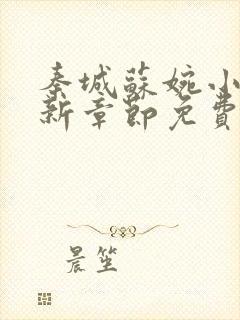 秦城蘇婉小
新章節免費
晨笙